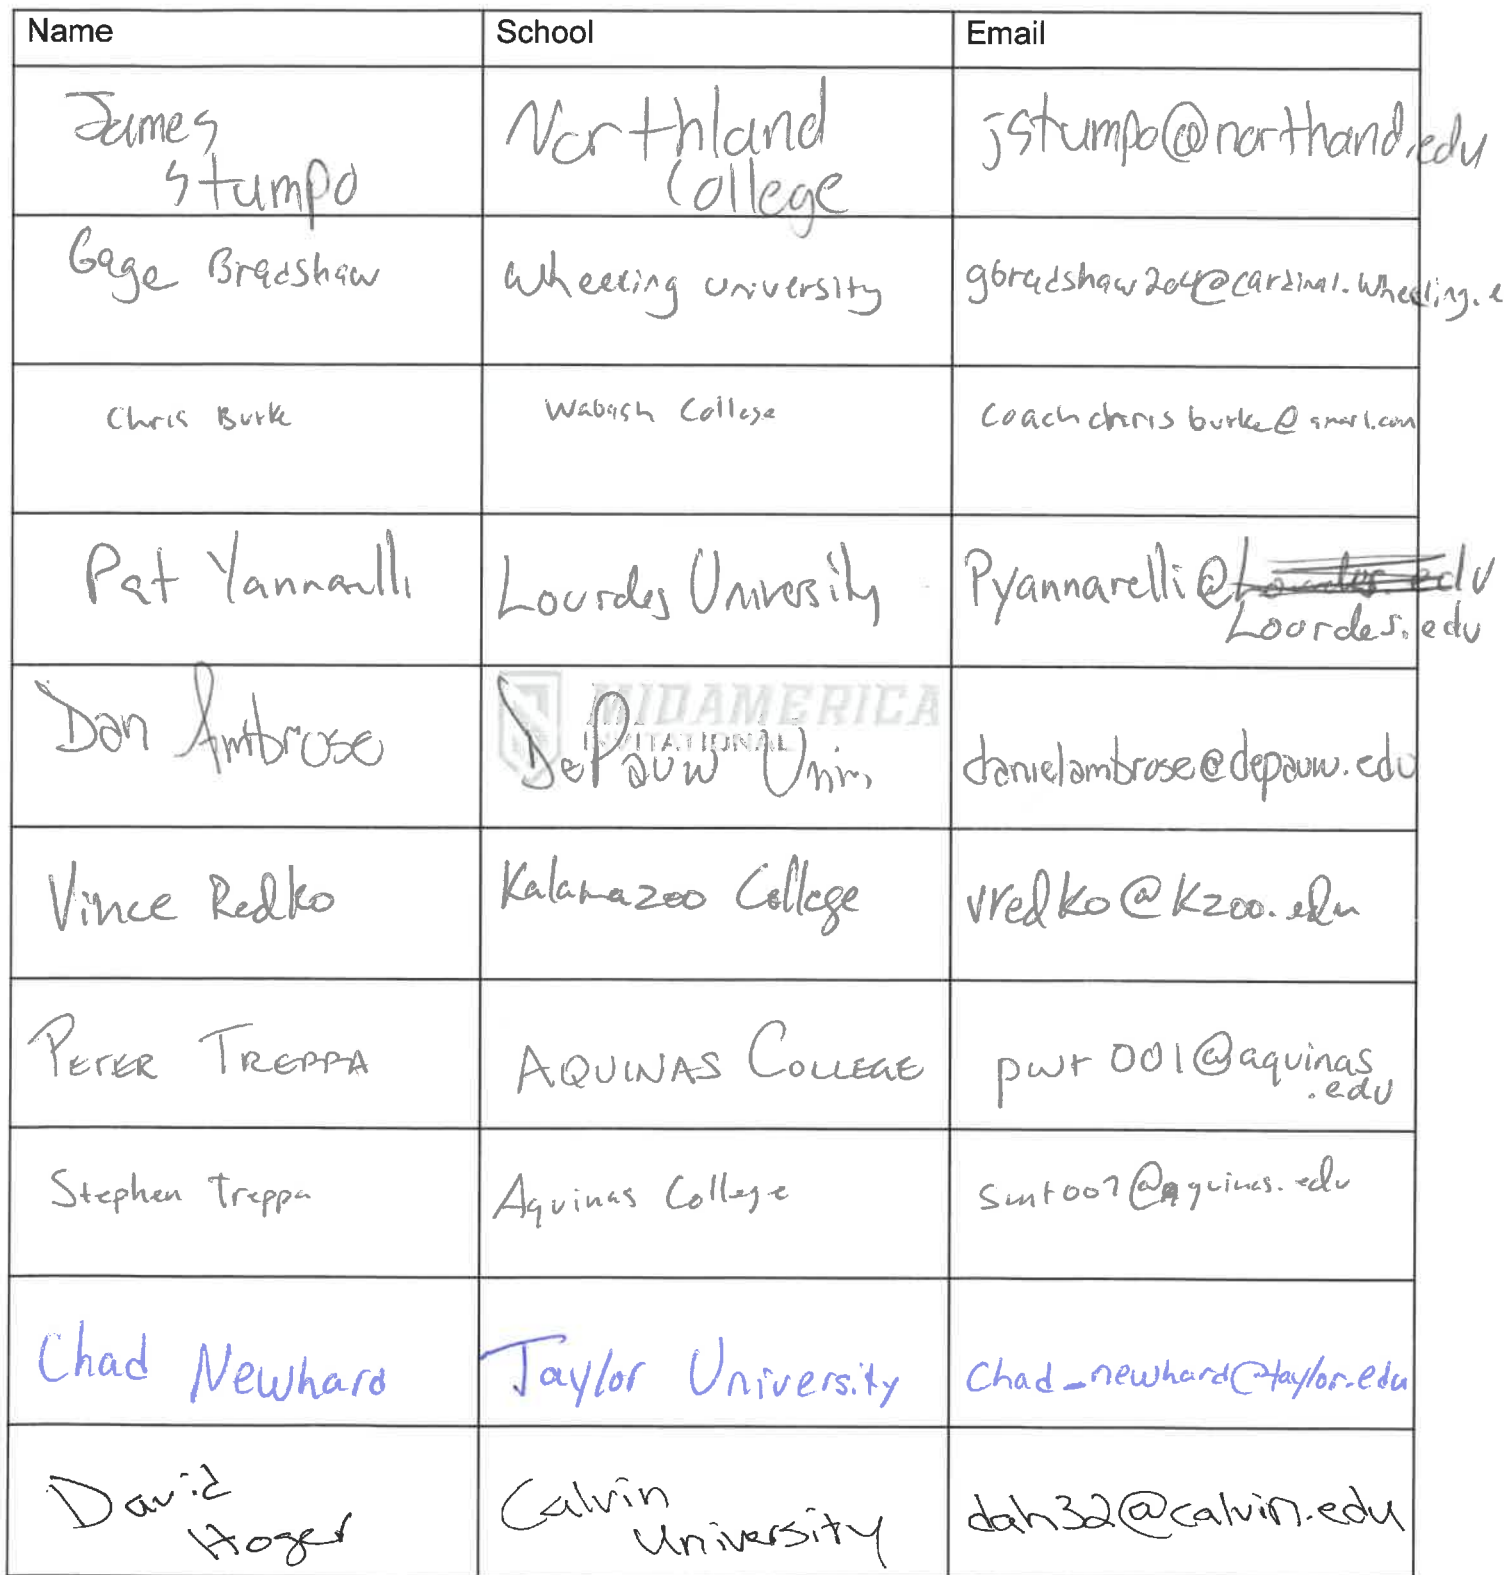 Name School Email
James
Stumpo
Northland
College
jstumpo@northand.edu
Gage Bradshaw
Wheeling University
gbradshaw204@cardinal.wheeling.e
Chris Burke
Wabash College
coachchrisburke@gmail.com
Pat Yannarelli
Lourdes University
Pyannarelli@Lourdes.edu
Lourdes.edu
MIDAMERICA
INVITATIONAL
Dan Ambrose
DePauw Univ.
danielambrose@depauw.edu
Vince Redko
Kalamazoo College
vredko@kzoo.edu
PETER TREPPA
AQUINAS COLLEGE
pwt001@aquinas
.edu
Stephen Treppa
Aquinas College
smt007@aquinas.edu
Chad Newhard
Taylor University
Chad_newhard@taylor.edu
David
Hoger
Calvin
University
dah32@calvin.edu